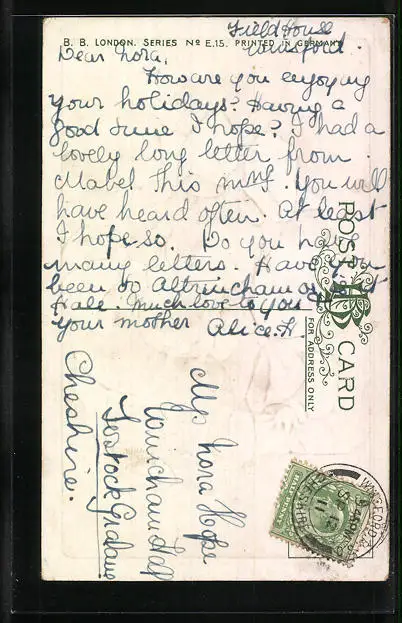 B. B. LONDON. SERIES Nº E.15. PRINTED IN GERMANY
Field House
Winsford.
Dear Nora,
How are you enjoying
your holidays? Having a
good time I hope? I had a
lovely long letter from
Mabel this mng. You will
have heard often. At least
I hope so. Do you have
many letters. Have you
been to Altrincham or
Hale. Much love to you
your mother Alice. H.
POST CARD
FOR ADDRESS ONLY
Nora Hope
Hall
Lostock Gralam
Cheshire.
WINSFORD
CHESHIRE